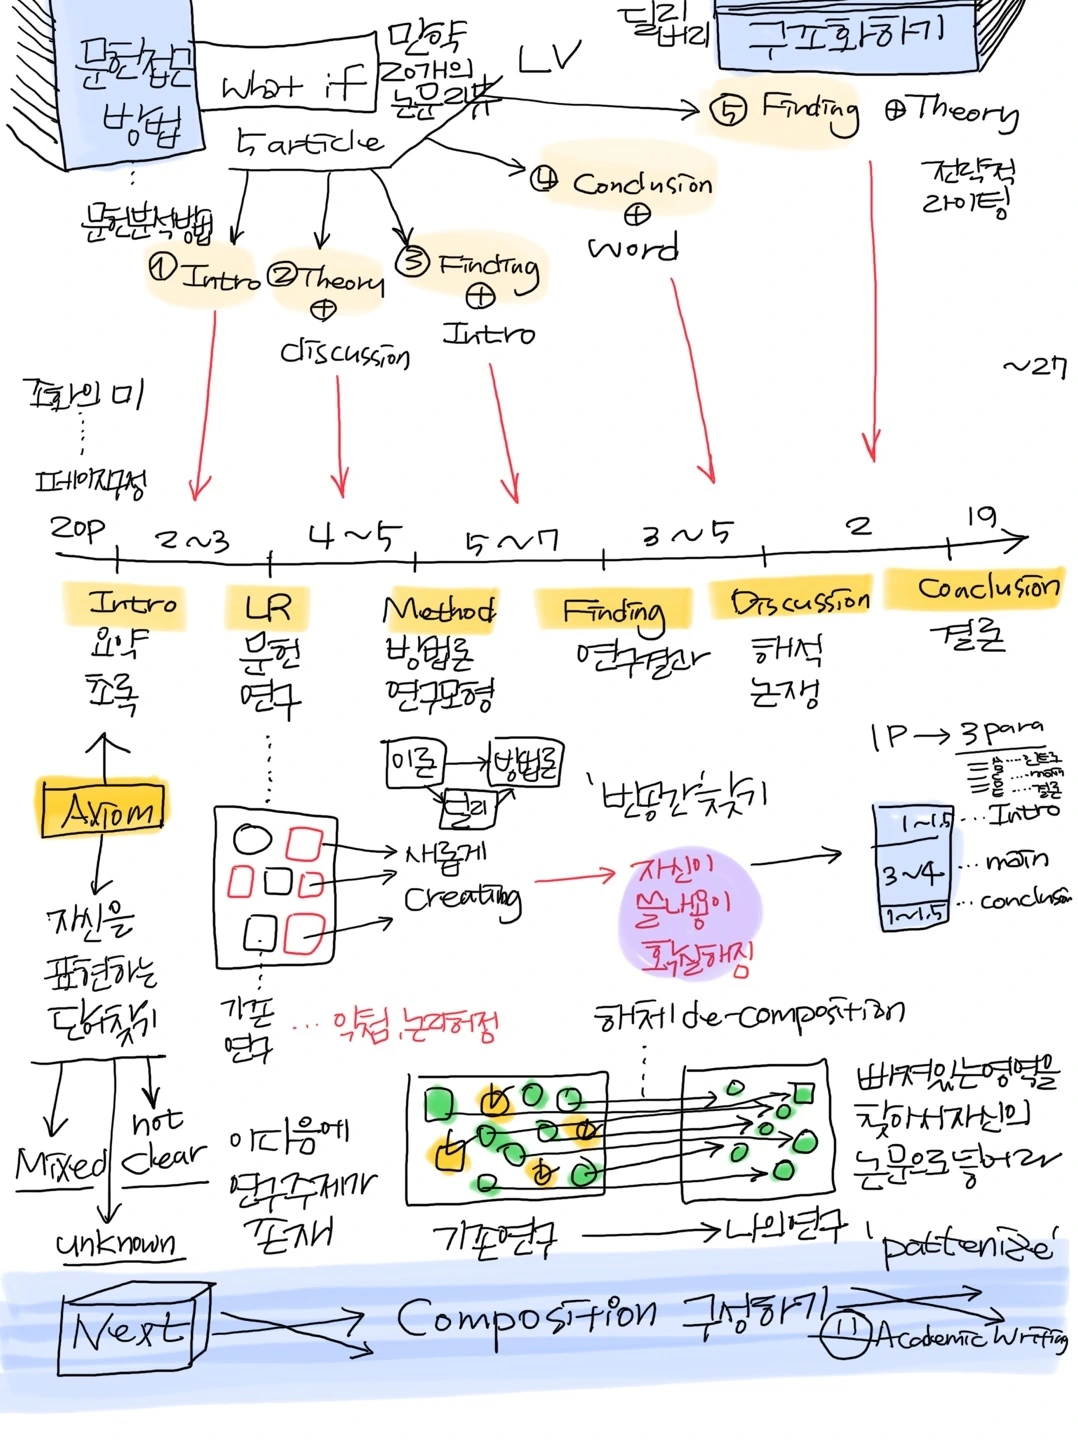 문헌접근
방법
what if
5 article
만약
20개의
논문리뷰
LV
딜리
버리
구조화하기
⑤ Finding ⊕ Theory
전략적
라이팅
④ Conclusion
⊕
Word
문헌분석방법
① Intro
② Theory
⊕
discussion
③ Finding
⊕
Intro
~27
조화의 미
페이지구성
20P
2~3
4~5
5~7
3~5
2
19
Intro
요약
초록
LR
문헌
연구
Method
방법론
연구모형
Finding
연구결과
Discussion
해석
논쟁
Conclusion
결론
Axiom
자신을
표현하는
단어찾기
Mixed
not
clear
unknown
이론
방법론
딜리
새롭게
Creating
'빈공간'찾기
자신이
쓸내용이
확실해짐
1P → 3para
서론
main
결론
1~1.5 … Intro
3~4 … main
1~1.5 … conclusion
기존
연구
… 약점, 논리허점
이다음에
연구주제가
존재
해체 | de-composition
기존연구
나의연구
빠져있는영역을
찾아서자신의
논문으로넣어라
'pattenize'
Next
Composition 구성하기
11
Academic Writing